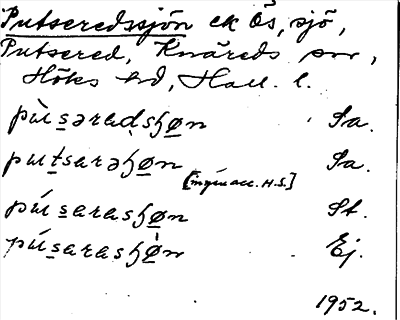 Putseredssjön ek Ös, sjö,
Putsered, Knäreds sn,
Höks hd, Hall. l.
pù s̲əradʂɧø̲n Sa.
put̲sarəɧø̲n Sa.
[ingen acc. H.S.]
pú s̲arasɧø̲n St.
pús̲arasɧø̲n Ej.
1952.